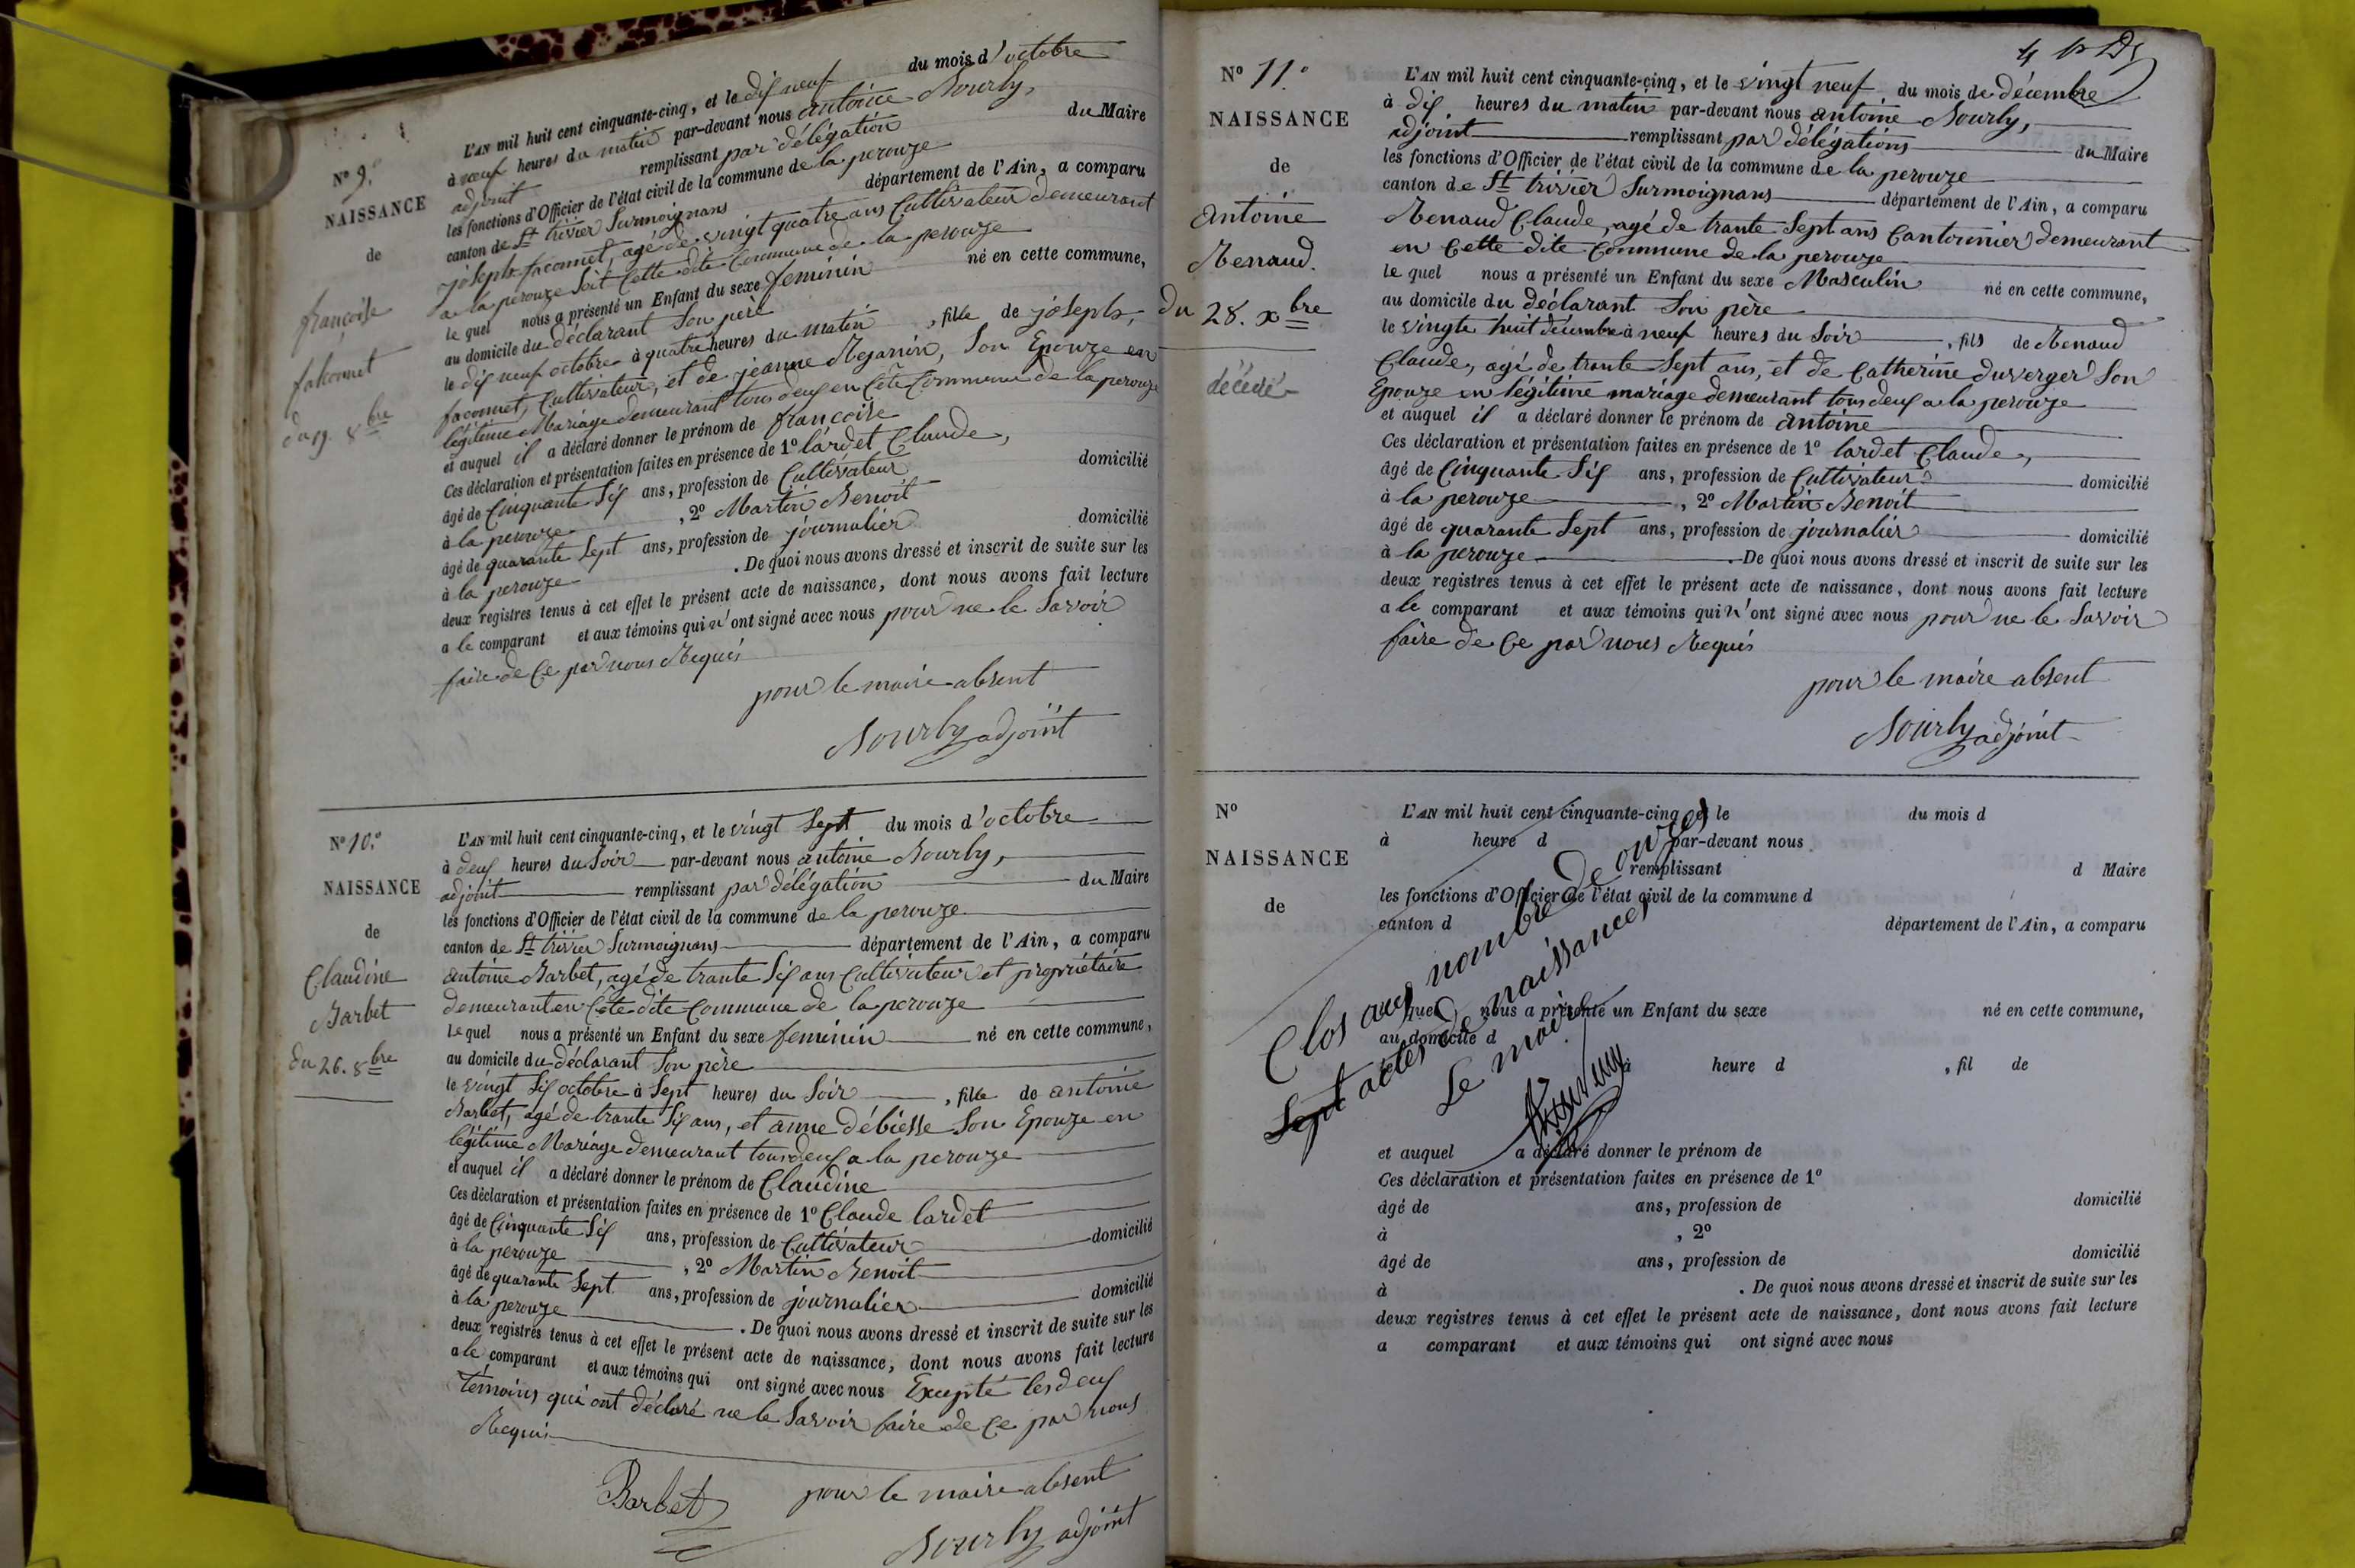 N° 9.°
NAISSANCE
de
françoise
faconnet
du 19. 8bre
L'AN mil huit cent cinquante-cinq, et le dix neuf du mois d'octobre
à neuf heures du matin par-devant nous antoine Bourly,
adjoint remplissant par délégation du Maire
les fonctions d'Officier de l'état civil de la commune de la perouze
canton de St trivier Surmoignans département de l'Ain, a comparu
joseph faconnet, agé de vingt quatre ans Cultivateur demeurant
a la perouze Soit Cette dite Commune de la perouze
le quel nous a présenté un Enfant du sexe feminin né en cette commune,
au domicile du déclarant Son père
le dix neuf octobre à quatre heures du matin, fille de joseph,
faconnet, Cultivateur, et de jeanne Mejannin, Son Epouze en
légitime Mariage demeurant tous deux en Cête Commune de la perouze
et auquel il a déclaré donner le prénom de françoise
Ces déclaration et présentation faites en présence de 1° lardet Claude,
âgé de Cinquante Six ans, profession de Cultivateur domicilié
à la perouze, 2° Martin Benoit
âgé de quarante Sept ans, profession de journalier domicilié
à la perouze. De quoi nous avons dressé et inscrit de suite sur les
deux registres tenus à cet effet le présent acte de naissance, dont nous avons fait lecture
a le comparant et aux témoins qui n'ont signé avec nous pour ne le Savoir
faire de Ce par nous Requis
pour le maire absent
Bourly adjoint
N° 10.°
NAISSANCE
de
Claudine
Barbet
du 26. 8bre
L'AN mil huit cent cinquante-cinq, et le vingt Sept du mois d'octobre
à deux heures du Soir par-devant nous antoine Bourly,
adjoint remplissant par délégation du Maire
les fonctions d'Officier de l'état civil de la commune de la perouze
canton de St trivier Surmoignans département de l'Ain, a comparu
antoine Barbet, agé de trante Six ans Cultivateur et propriétaire
demeurant en Cête dite Commune de la perouze
le quel nous a présenté un Enfant du sexe feminin né en cette commune,
au domicile du déclarant Son père
le vingt Six octobre à Sept heures du Soir, fille de antoine
Barbet, agé de trante Six ans, et anne débiesse Son Epouze en
légitime Mariage demeurant tous deux a la perouze
et auquel il a déclaré donner le prénom de Claudine
Ces déclaration et présentation faites en présence de 1° Claude lardet
âgé de Cinquante Six ans, profession de Cultivateur domicilié
à la perouze, 2° Martin Benoit
âgé de quarante Sept ans, profession de journalier domicilié
à la perouze. De quoi nous avons dressé et inscrit de suite sur les
deux registres tenus à cet effet le présent acte de naissance, dont nous avons fait lecture
a le comparant et aux témoins qui ont signé avec nous Excepté les deux
témoins qui ont déclaré ne le Savoir faire de Ce par nous
Requis
Barbet pour le maire absent
Bourly adjoint
N° 11.°
NAISSANCE
de
antoine
Renaud.
Du 28. xbre
décédé
L'AN mil huit cent cinquante-cinq, et le vingt neuf du mois de décembre
à dix heures du matin par-devant nous antoine Bourly,
adjoint remplissant par délégations du Maire
les fonctions d'Officier de l'état civil de la commune de la perouze
canton de St trivier Surmoignans département de l'Ain, a comparu
Renaud Claude, agé de trante Sept ans Cantonnier demeurant
en Cette dite Commune de la perouze
le quel nous a présenté un Enfant du sexe Masculin né en cette commune,
au domicile du déclarant Son père
le vingte huit décembre à neuf heures du Soir, fils de Renaud
Claude, agé de trante Sept ans, et de Catherine Duverger Son
Epouze en légitime mariage demeurant tous deux a la perouze
et auquel il a déclaré donner le prénom de antoine
Ces déclaration et présentation faites en présence de 1° lardet Claude,
âgé de Cinquante Six ans, profession de Cultivateur domicilié
à la perouze, 2° Martin Benoit
âgé de quarante Sept ans, profession de journalier domicilié
à la perouze. De quoi nous avons dressé et inscrit de suite sur les
deux registres tenus à cet effet le présent acte de naissance, dont nous avons fait lecture
a le comparant et aux témoins qui n'ont signé avec nous pour ne le Savoir
faire de Ce par nous Requis
pour le maire absent
Bourly adjoint
N°
NAISSANCE
de
L'AN mil huit cent cinquante-cinq, et le du mois d
à heure d par-devant nous
remplissant d Maire
les fonctions d'Officier de l'état civil de la commune d
canton d département de l'Ain, a comparu
quel nous a présenté un Enfant du sexe né en cette commune,
au domicile d
à heure d , fil de
et auquel a déclaré donner le prénom de
Ces déclaration et présentation faites en présence de 1°
âgé de ans, profession de domicilié
à , 2°
âgé de ans, profession de domicilié
à . De quoi nous avons dressé et inscrit de suite sur les
deux registres tenus à cet effet le présent acte de naissance, dont nous avons fait lecture
a comparant et aux témoins qui ont signé avec nous
Clos aux nombre de onze
Sept actes de naissances
Le maire